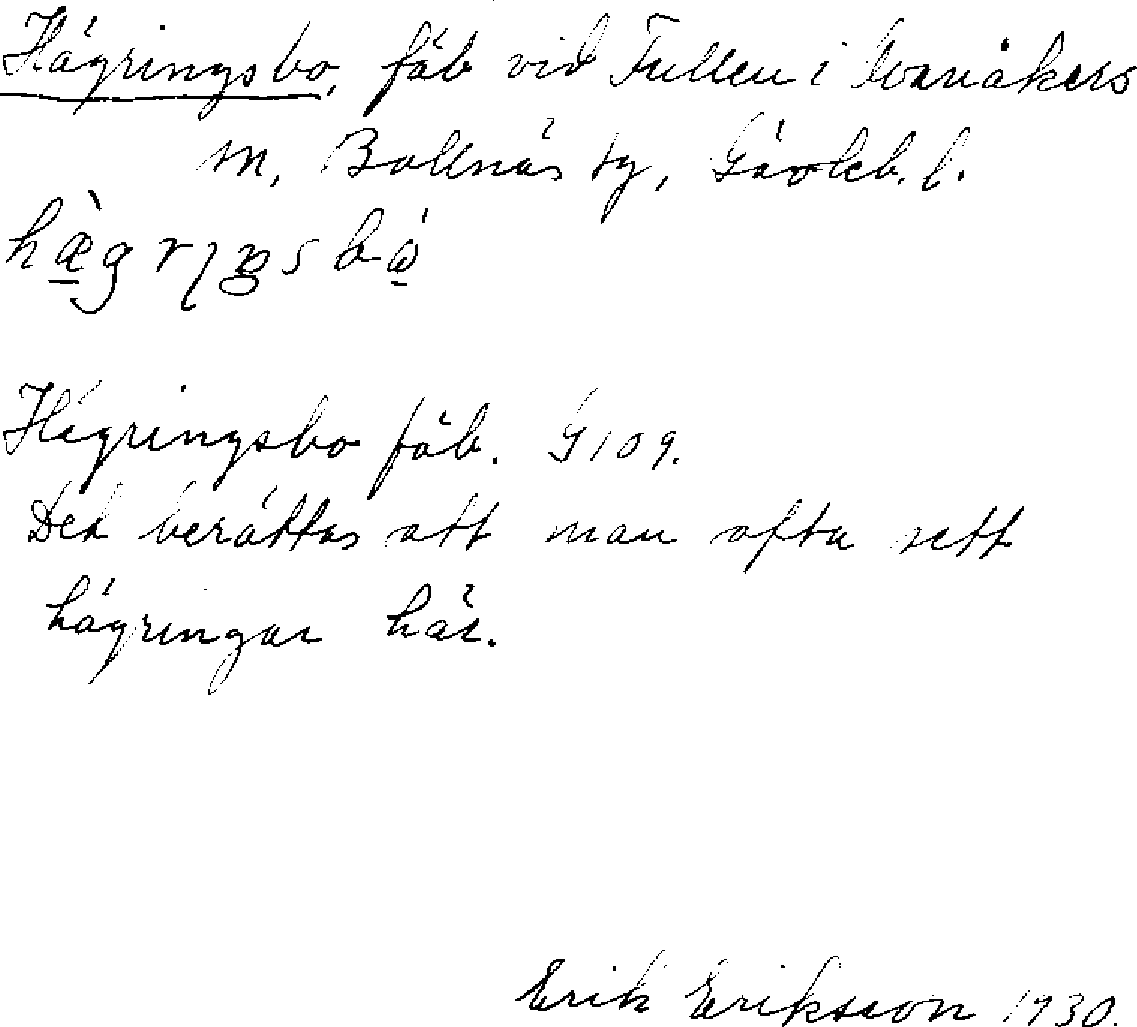 Hägringsbo, fäb vid Tullen i Svanåkers
m, Bollnäs tg, Gävleb. l.
Hägringsbo fäb. G 109.
Det berättas att man ofta sett
hägringar här.
Erik Eriksson 1930.